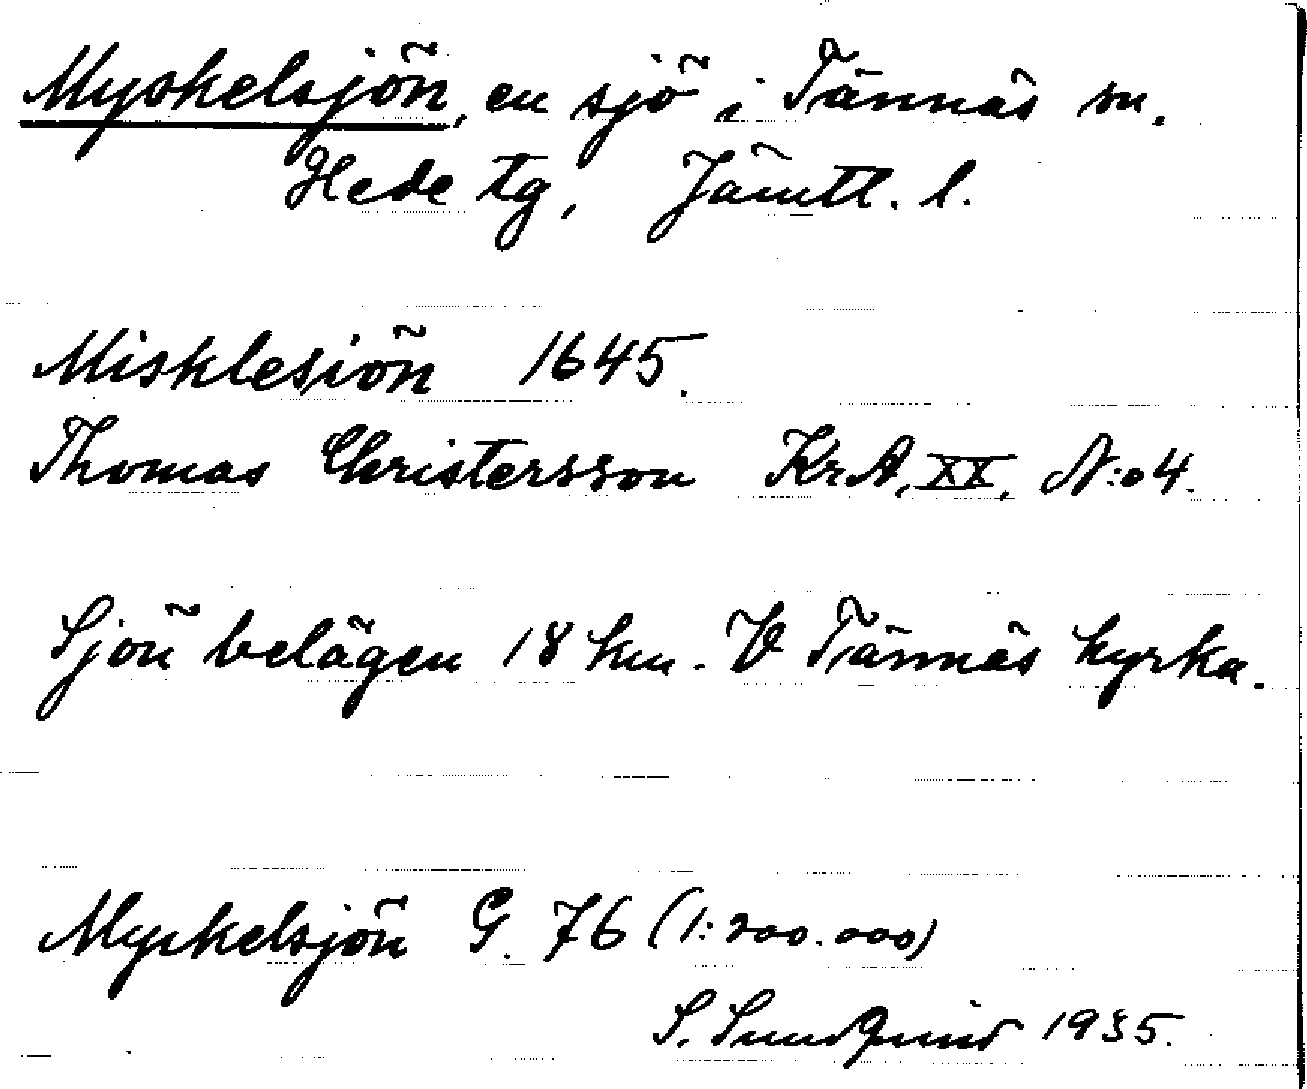 Myskelsjön, en sjö i Tännäs sn.
Hede tg, Jämtl. l.
Misklesiön 1645.
Thomas Christersson Kr.A, XX, N:o 4.
Sjön belägen 18 km. V Tännäs kyrka.
Myskelsjön G. 76 (1:200.000)
S. Sundquist 1935.